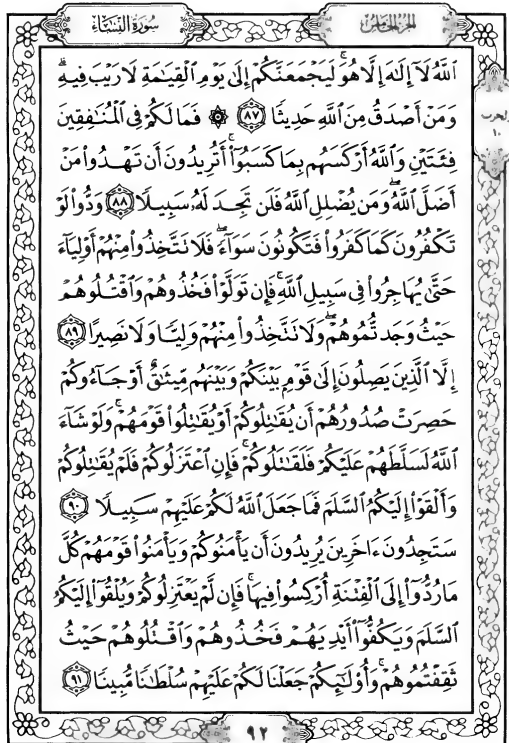 سُورَةُ النِّسَاءِ
الجزء الخامس
الحزب
١٠
ٱللَّهُ لَآ إِلَٰهَ إِلَّا هُوَۚ لَيَجۡمَعَنَّكُمۡ إِلَىٰ يَوۡمِ ٱلۡقِيَٰمَةِ لَا رَيۡبَ فِيهِۗ
وَمَنۡ أَصۡدَقُ مِنَ ٱللَّهِ حَدِيثٗا ٨٧ ۞ فَمَا لَكُمۡ فِي ٱلۡمُنَٰفِقِينَ
فِئَتَيۡنِ وَٱللَّهُ أَرۡكَسَهُم بِمَا كَسَبُوٓاْۚ أَتُرِيدُونَ أَن تَهۡدُواْ مَنۡ
أَضَلَّ ٱللَّهُۖ وَمَن يُضۡلِلِ ٱللَّهُ فَلَن تَجِدَ لَهُۥ سَبِيلٗا ٨٨ وَدُّواْ لَوۡ
تَكۡفُرُونَ كَمَا كَفَرُواْ فَتَكُونُونَ سَوَآءٗۖ فَلَا تَتَّخِذُواْ مِنۡهُمۡ أَوۡلِيَآءَ
حَتَّىٰ يُهَاجِرُواْ فِي سَبِيلِ ٱللَّهِۚ فَإِن تَوَلَّوۡاْ فَخُذُوهُمۡ وَٱقۡتُلُوهُمۡ
حَيۡثُ وَجَدتُّمُوهُمۡۖ وَلَا تَتَّخِذُواْ مِنۡهُمۡ وَلِيّٗا وَلَا نَصِيرًا ٨٩
إِلَّا ٱلَّذِينَ يَصِلُونَ إِلَىٰ قَوۡمِۭ بَيۡنَكُمۡ وَبَيۡنَهُم مِّيثَٰقٌ أَوۡ جَآءُوكُمۡ
حَصِرَتۡ صُدُورُهُمۡ أَن يُقَٰتِلُوكُمۡ أَوۡ يُقَٰتِلُواْ قَوۡمَهُمۡۚ وَلَوۡ شَآءَ
ٱللَّهُ لَسَلَّطَهُمۡ عَلَيۡكُمۡ فَلَقَٰتَلُوكُمۡۚ فَإِنِ ٱعۡتَزَلُوكُمۡ فَلَمۡ يُقَٰتِلُوكُمۡ
وَأَلۡقَوۡاْ إِلَيۡكُمُ ٱلسَّلَمَ فَمَا جَعَلَ ٱللَّهُ لَكُمۡ عَلَيۡهِمۡ سَبِيلٗا ٩٠
سَتَجِدُونَ ءَاخَرِينَ يُرِيدُونَ أَن يَأۡمَنُوكُمۡ وَيَأۡمَنُواْ قَوۡمَهُمۡ كُلَّ
مَا رُدُّوٓاْ إِلَى ٱلۡفِتۡنَةِ أُرۡكِسُواْ فِيهَاۚ فَإِن لَّمۡ يَعۡتَزِلُوكُمۡ وَيُلۡقُوٓاْ إِلَيۡكُمُ
ٱلسَّلَمَ وَيَكُفُّوٓاْ أَيۡدِيَهُمۡ فَخُذُوهُمۡ وَٱقۡتُلُوهُمۡ حَيۡثُ
ثَقِفۡتُمُوهُمۡۚ وَأُوْلَٰٓئِكُمۡ جَعَلۡنَا لَكُمۡ عَلَيۡهِمۡ سُلۡطَٰنٗا مُّبِينٗا ٩١
٩٢